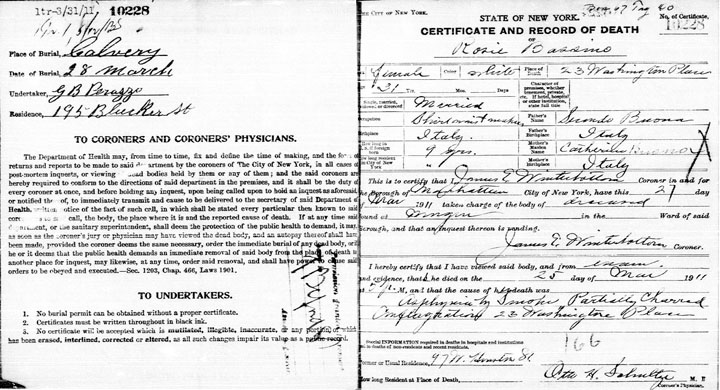 1tr-3/31/11, 10228
Place of Burial, Calvery
Date of Burial, 28 March
Undertaker, G B Perazzo
Residence, 195 Bleecker St
TO CORONERS AND CORONERS' PHYSICIANS.
The Department of Health may, from time to time, fix and define the time of making, and the form of
returns and reports to be made to said department by the coroners of The City of New York, in all cases of
post-mortem inquiries, or viewing dead bodies held by them or any of them; and the said coroners are
hereby required to conform to the directions of said department in the premises, and it shall be the duty of
every coroner at once, and before holding any inquest, upon being called upon to hold an inquest as aforesaid,
or notified thereof, to immediately transmit and cause to be delivered to the secretary of said Department of
Health, written notice of the fact of such call, in which shall be stated every particular then known to said
coroner as to said call, the body, the place where it is and the reported cause of death. If at any time said
department, or the sanitary superintendent, shall deem the protection of the public health to demand, it may,
as soon as the coroner's jury or physician may have viewed the dead body, and an autopsy thereof shall have
been made, provided the coroner deems the same necessary, order the immediate burial of any dead body, or if
he or it deems that the public health demands an immediate removal of said body from the place of death to
another place for inquest, may likewise, at any time, order said removal, and shall have power to cause said
orders to be obeyed and executed.—Sec. 1203, Chap. 466, Laws 1901.
TO UNDERTAKERS.
1. No burial permit can be obtained without a proper certificate.
2. Certificates must be written throughout in black ink.
3. No certificate will be accepted which is mutilated, illegible, inaccurate, or any portion of which
has been erased, interlined, corrected or altered, as all such changes impair its value as a public record.
THE CITY OF NEW YORK.
STATE OF NEW YORK.
No. of Certificate,
10228
CERTIFICATE AND RECORD OF DEATH
OF
Rosie Bassino
Female Color White Place of Death 23 Washington Place
31 Yrs. Mos. Days.
Character of premises, whether tenement, private, etc. If hotel, hospital or other institution, state full title
Single, married, widowed, or divorced Married
Occupation Shirtwaist maker Father's Name
Birthplace Italy Father's Birthplace Italy
How long in U.S. if foreign born 9 yrs. Mother's Maiden Name
How long resident in City of New York " Mother's Birthplace Italy
This is to certify that I James E. Winterbottom Coroner in and for
the Borough of Manhattan City of New York, have this 27 day
of Mar 1911 taken charge of the body of deceased
found at Morgue in the Ward of said
Borough, and that an inquest thereon is pending.
James E. Winterbottom Coroner.
I hereby certify that I have viewed said body, and from exam.
and evidence, that she died on the 25 day of Mar 1911
M., and that the cause of her death was
Asphyxia by Smoke Partially Charred
Conflagration 23 Washington Place
166
SPECIAL INFORMATION required in deaths in hospitals and institutions
and in deaths of non-residents and recent residents.
Former or Usual Residence, 57 W. Houston St
How long Resident at Place of Death, Otto H. Schultze M. D.
Coroner's Physician.